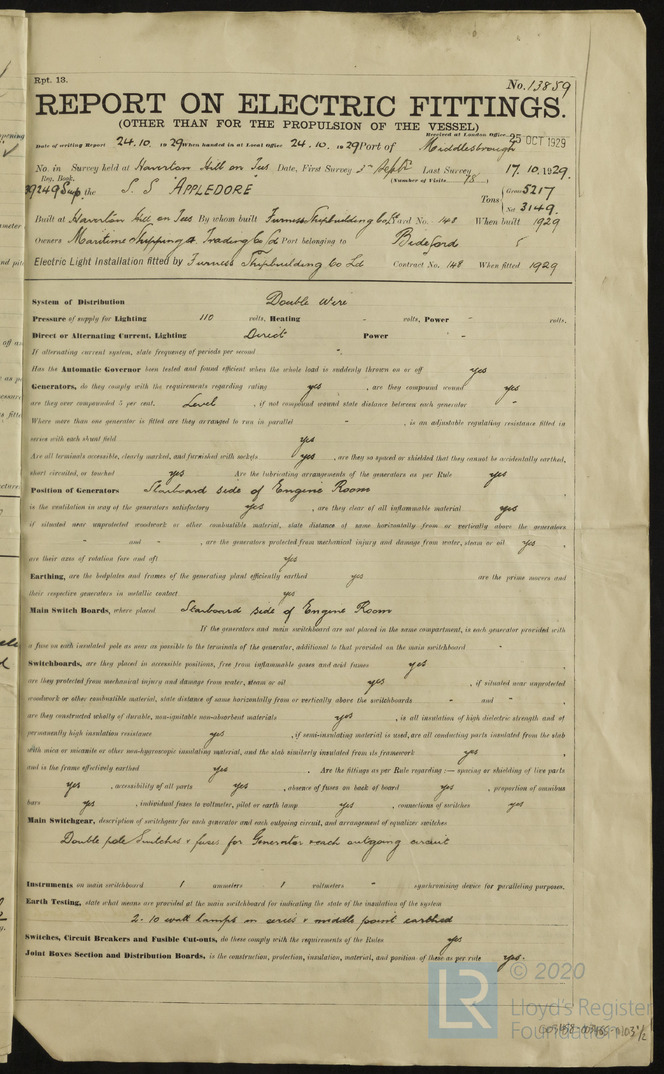 Rpt. 13.
No. 13859
REPORT ON ELECTRIC FITTINGS.
(OTHER THAN FOR THE PROPULSION OF THE VESSEL)
Received at London Office 25 OCT 1929
Date of writing Report 24.10. 1929 When handed in at Local Office 24.10. 1929 Port of Middlesbrough
No. in Survey held at Haverton Hill on Tees. Date, First Survey 5 Sept. Last Survey 17.10.1929.
Reg. Book. (Number of Visits 18)
39249 Sup. the S.S APPLEDORE Tons { Gross 5217
Net 3149.
Built at Haverton Hill on Tees By whom built Furness Shipbuilding Co Ld Yard No. 148 When built 1929
Owners Maritime Shipping & Trading Co Ld Port belonging to Bideford
Electric Light Installation fitted by Furness Shipbuilding Co Ld Contract No. 148 When fitted 1929
System of Distribution Double Wire
Pressure of supply for Lighting 110 volts, Heating - volts, Power - volts.
Direct or Alternating Current, Lighting Direct Power -
If alternating current system, state frequency of periods per second -
Has the Automatic Governor been tested and found efficient when the whole load is suddenly thrown on or off yes
Generators, do they comply with the requirements regarding rating yes , are they compound wound yes
are they over compounded 5 per cent. Level , if not compound wound state distance between each generator -
Where more than one generator is fitted are they arranged to run in parallel - , is an adjustable regulating resistance fitted in
series with each shunt field yes
Are all terminals accessible, clearly marked, and furnished with sockets yes , are they so spaced or shielded that they cannot be accidentally earthed,
short circuited, or touched yes Are the lubricating arrangements of the generators as per Rule yes
Position of Generators Starboard side of Engine Room
is the ventilation in way of the generators satisfactory yes , are they clear of all inflammable material yes
if situated near unprotected woodwork or other combustible material, state distance of same horizontally from or vertically above the generators
- and - , are the generators protected from mechanical injury and damage from water, steam or oil yes ,
are their axes of rotation fore and aft yes
Earthing, are the bedplates and frames of the generating plant efficiently earthed yes are the prime movers and
their respective generators in metallic contact yes
Main Switch Boards, where placed Starboard side of Engine Room
If the generators and main switchboard are not placed in the same compartment, is each generator provided with
a fuse on each insulated pole as near as possible to the terminals of the generator, additional to that provided on the main switchboard -
Switchboards, are they placed in accessible positions, free from inflammable gases and acid fumes yes ,
are they protected from mechanical injury and damage from water, steam or oil yes , if situated near unprotected
woodwork or other combustible material, state distance of same horizontally from or vertically above the switchboards - and - ,
are they constructed wholly of durable, non-ignitable non-absorbent materials yes , is all insulation of high dielectric strength and of
permanently high insulation resistance yes , if semi-insulating material is used, are all conducting parts insulated from the slab
with mica or micanite or other non-hygroscopic insulating material, and the slab similarly insulated from its framework yes ,
and is the frame effectively earthed yes . Are the fittings as per Rule regarding :— spacing or shielding of live parts
yes , accessibility of all parts yes , absence of fuses on back of board yes , proportion of omnibus
bars yes , individual fuses to voltmeter, pilot or earth lamp yes , connections of switches yes
Main Switchgear, description of switchgear for each generator and each outgoing circuit, and arrangement of equalizer switches
Double pole Switches & fuses for Generator & each outgoing circuit
Instruments on main switchboard 1 ammeters 1 voltmeters - synchronising device for paralleling purposes.
Earth Testing, state what means are provided at the main switchboard for indicating the state of the insulation of the system
2-10 watt lamps in series & middle point earthed
Switches, Circuit Breakers and Fusible Cut-outs, do these comply with the requirements of the Rules yes
Joint Boxes Section and Distribution Boards, is the construction, protection, insulation, material, and position of these as per rule yes.
LR
© 2020
Lloyd's Register
Foundation